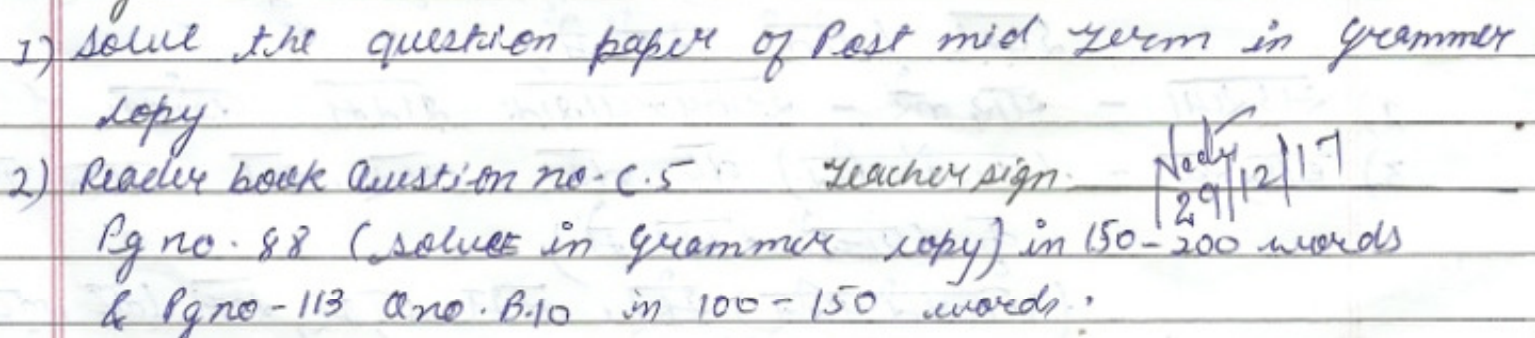 1) Solve the question paper of Post mid term in Grammer
copy.
2) Reader book Question no. C.5 Teacher sign.
29/12/17
Pg no. 88 (solve in Grammer copy) in 150-200 words
& Pg no-113 Q no. B.10 in 100-150 words.